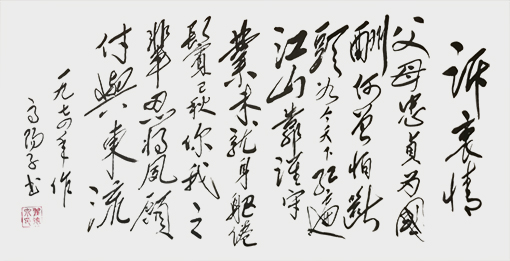 诉衷情
父母忠贞为國
酬何曾怕断
頭如今天下红遍
江山靠谁守
業未就身躯倦
鬓已秋你我之
輩忍将夙願
付與東流
一九七四年作
高阳子书